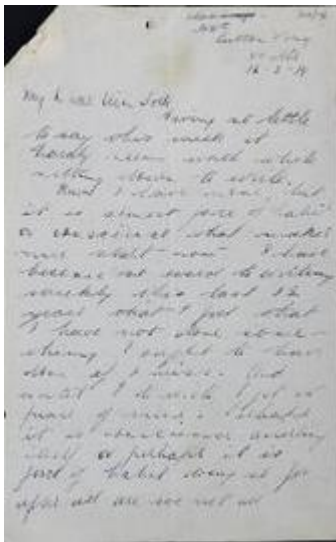 Sutton Veny
Wilts
16-2-19
My
having so little
to say this week it
hardly seems worth while
sitting down to write.
I have none, but
it is almost force of habit
or conscience that makes
me start now I have
become so used to writing
weekly this last
years that I feel that
I have not done some-
thing I ought to have
done if I miss. And
until I do write I get no
peace of mind
it is conscience
itself or perhaps it is
force of habit doing it for
after all are we not all